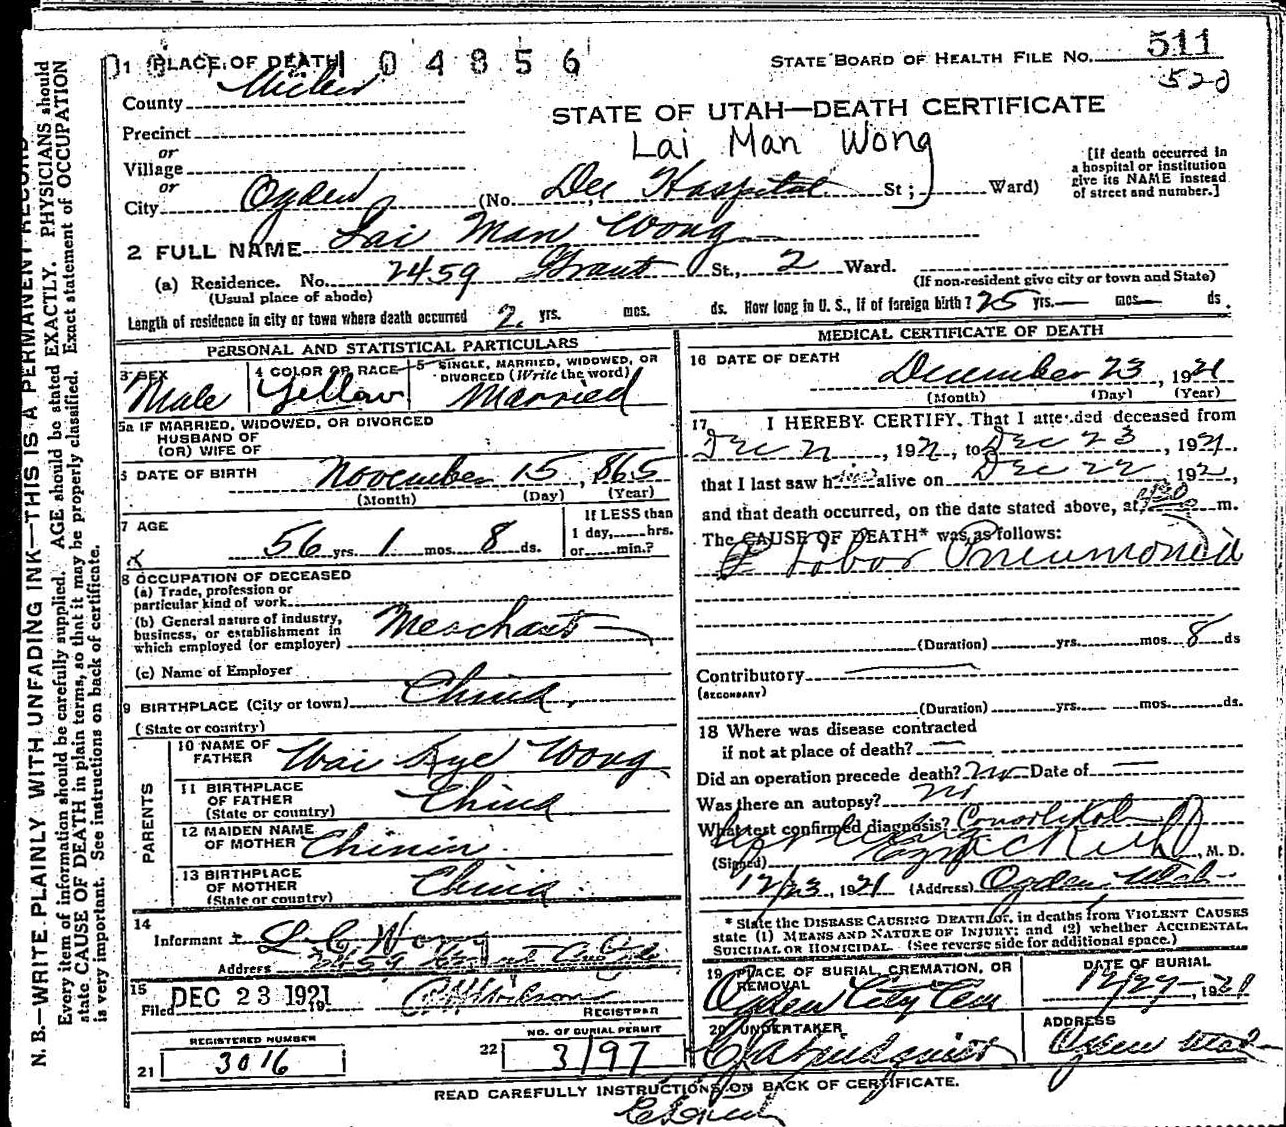 1 PLACE OF DEATH 104856
STATE BOARD OF HEALTH FILE No. 511
520
County
STATE OF UTAH—DEATH CERTIFICATE
Precinct
Lai Man Wong
or
Village
or
City Ogden (No. Dee Hospital St; Ward)
[If death occurred in
a hospital or institution
give its NAME instead
of street and number.]
2 FULL NAME Lai Man Wong
(a) Residence. No. 2459 Grant St., 2 Ward.
(Usual place of abode)
(If non-resident give city or town and State)
Length of residence in city or town where death occurred 2 yrs. mos. ds. How long in U. S., if of foreign birth? 25 yrs.— mos— ds.
PERSONAL AND STATISTICAL PARTICULARS
3 SEX
Male
4 COLOR OR RACE
Yellow
5 SINGLE, MARRIED, WIDOWED, OR
DIVORCED (Write the word)
Married
5a IF MARRIED, WIDOWED, OR DIVORCED
HUSBAND OF
(OR) WIFE OF
6 DATE OF BIRTH November 15, 865
(Month) (Day) (Year)
7 AGE
56 yrs. 1 mos. 8 ds.
If LESS than
1 day, hrs.
or min.?
8 OCCUPATION OF DECEASED
(a) Trade, profession or
particular kind of work
(b) General nature of industry,
business, or establishment in
which employed (or employer) Merchant
(c) Name of Employer
9 BIRTHPLACE (City or town) China.
(State or country)
PARENTS
10 NAME OF
FATHER Wai Kye Wong
11 BIRTHPLACE
OF FATHER China
(State or country)
12 MAIDEN NAME
OF MOTHER Chinin.
13 BIRTHPLACE
OF MOTHER China.
(State or country)
14
Informant L C Wong
Address 2459 Grant Ave
15
Filed DEC 23 1921 19
REGISTRAR
REGISTERED NUMBER
21 3016
NO. OF BURIAL PERMIT
22 3197
MEDICAL CERTIFICATE OF DEATH
16 DATE OF DEATH
December 23, 1921
(Month) (Day) (Year)
17 I HEREBY CERTIFY, That I attended deceased from
Dec , 192, to Dec 23 1921,
that I last saw h alive on Dec 22 192,
and that death occurred, on the date stated above, at m.
The CAUSE OF DEATH* was as follows:
Lobar Pneumonia
(Duration) yrs. mos. 8 ds
Contributory
(SECONDARY)
(Duration) yrs. mos. ds.
18 Where was disease contracted
if not at place of death? —
Did an operation precede death? no Date of —
Was there an autopsy? no
What test confirmed diagnosis?
(Signed) , M. D.
12/23, 1921 (Address) Ogden Utah
* State the DISEASE CAUSING DEATH or, in deaths from VIOLENT CAUSES
state (1) MEANS AND NATURE OF INJURY; and (2) whether ACCIDENTAL,
SUICIDAL OR HOMICIDAL. (See reverse side for additional space.)
19 PLACE OF BURIAL, CREMATION, OR
REMOVAL
Ogden City Cem
DATE OF BURIAL
12/27, 1921
20 UNDERTAKER
ADDRESS
Ogden Utah
READ CAREFULLY INSTRUCTIONS ON BACK OF CERTIFICATE.
N. B.—WRITE PLAINLY WITH UNFADING INK—THIS IS A PERMANENT RECORD
Every item of information should be carefully supplied. AGE should be stated EXACTLY. PHYSICIANS should
state CAUSE OF DEATH in plain terms, so that it may be properly classified. Exact statement of OCCUPATION
is very important. See instructions on back of certificate.